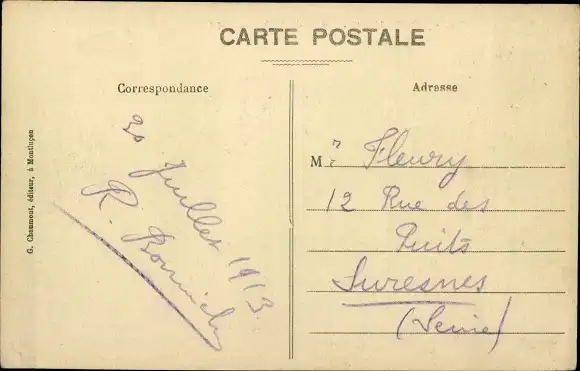 CARTE POSTALE
Correspondance
Adresse
G. Chaumont, éditeur, à Montluçon
30 Juillet 1913
R.
M Fleury
12 Rue des
Puits
Suresnes
(Seine)